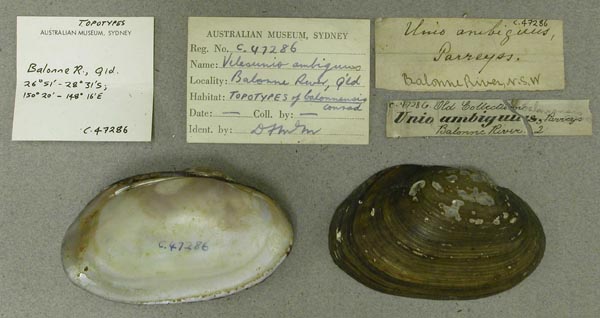 TOPOTYPES
AUSTRALIAN MUSEUM, SYDNEY
Balonne R., Qld.
26°51'-28°31'S;
150°20'-148°16'E
C.47286
AUSTRALIAN MUSEUM, SYDNEY
Reg. No. C.47286
Name: Velesunio ambiguus
Locality: Balonne River, Qld
Habitat: TOPOTYPES of balonnensis
conrad
Date: — Coll. by: —
Ident. by:
C.47286
Unio ambiguus,
Parreyss.
Balonne River, N.S.W
C.47286. Old Collection
Unio ambiguus, Parreys
Balonne River 2
C.47286